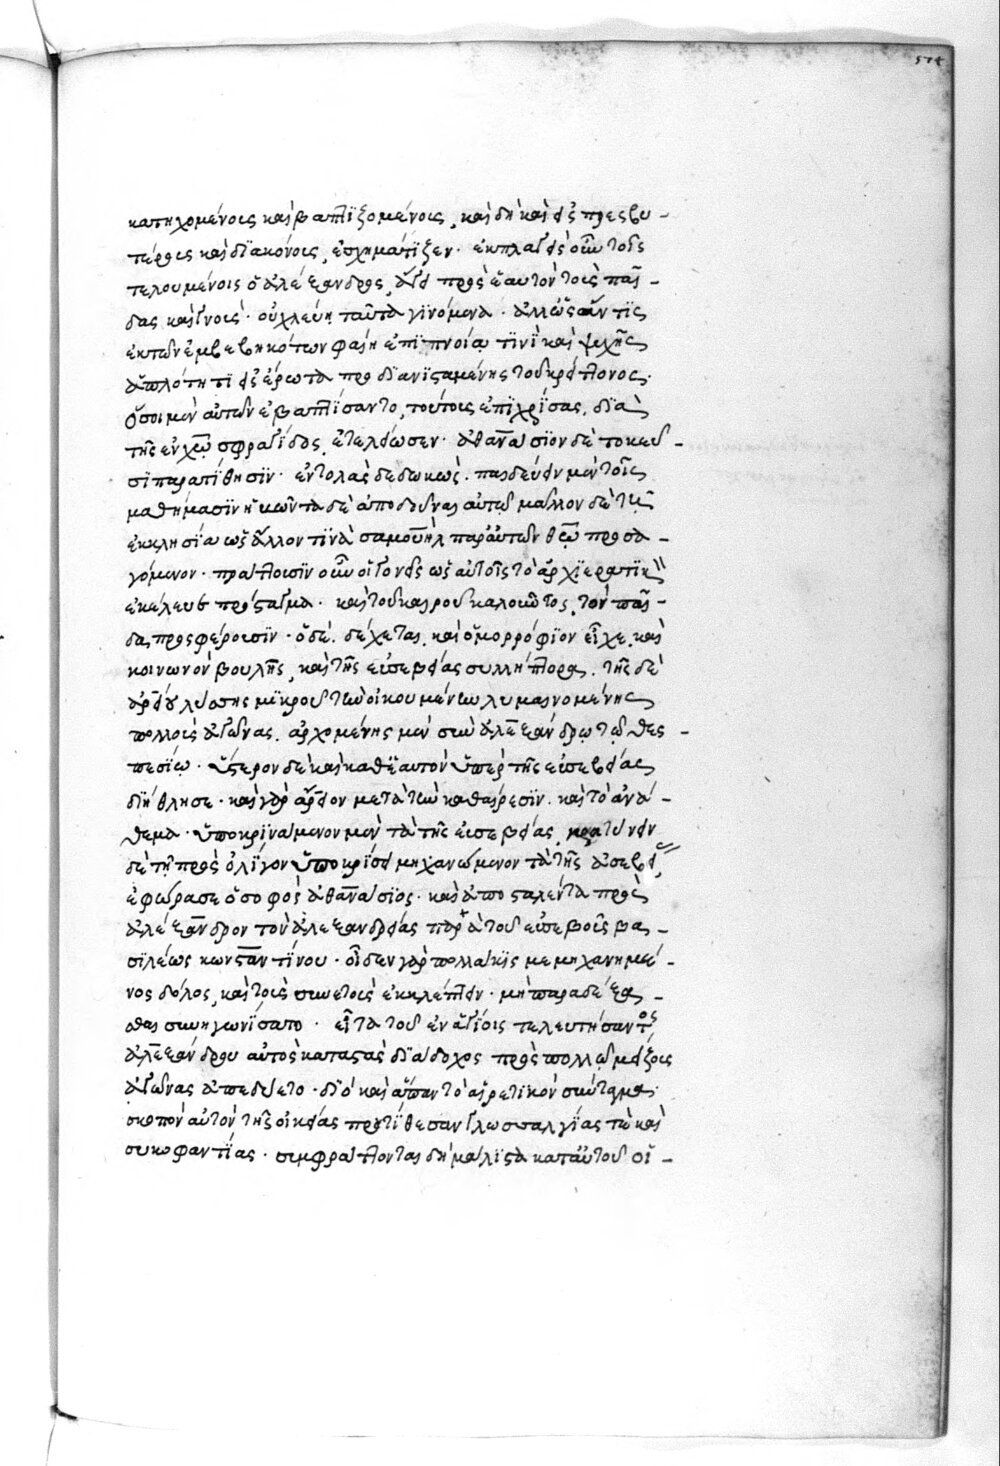 514
κατηχομένοις καὶ βαπτϊζομένοις, καὶ δὴ καὶ εἰς πρεσβυ-
τέροις καὶ δϊακόνοις, ἐσχημάτϊζεν. ἐκπλαγεὶς οὖν τοῖς
τελουμένοις ὁ ἀλέξανδρος, ἄγει πρὸς ἑαυτὸν τοὺς παῖ-
δας καὶ γνοὺς. οὐ χλεύη ταῦτα γϊνόμενα. ἀλλ' ὡς ἄν τϊς
ἐκ τῶν ἐμβεβηκότων φαίη ἐπϊπνοίᾳ τϊνϊ καὶ ψυχῆς
ἁπλότητϊ εἰς ἔρωτα προδϊανϊσταμένης τοῦ κρείττονος.
ὅσοι μὲν αὐτῶν ἐβαπτίσαντο, τούτοις ἐπϊχρίσας, δϊὰ
τῆς ἐν χῶ σφραγῖδος, ἐτελείωσεν. ἀθανάσϊον δὲ τοκεῦ-
σϊ παρατίθησϊν. ἐντολὰς δεδωκὼς. παιδεύειν μὲν τοῖς
μαθήμασϊν ἥκοντα δὲ ἀποδοῦναι αὐτῷ μᾶλλον δὲ τῇ
ἐκκλησίᾳ ὡς ἄλλον τϊνὰ σαμουὴλ παρ' αὐτῶν θῶ προσα-
γόμενον. πράττουσϊν οὖν οἱ γονεῖς ὡς αὐτοῖς τὸ ἀρχϊερατϊκὸν
ἐκέλευε πρόσταγμα. καὶ τοῦ καιροῦ καλοῦντος, τὸν παῖ-
δα προσφέρουσϊν. ὁ δὲ. δέχεται. καὶ ὁμορρόφϊον εἶχε. καὶ
κοινωνὸν βουλῆς, καὶ τῆς εὐσεβείας συλλήπτορα. τῆς δὲ
ἀρείου λύσσης μϊκροῦ τὴν οἰκουμένην λυμαινομένης
πολλοὺς ἀγῶνας. ἀρχομένης μὲν σὺν ἀλεξάνδρῳ τῷ θες-
πεσίῳ. ὕστερον δὲ καὶ καθ' ἑαυτὸν ὑπὲρ τῆς εὐσεβείας
δϊήθλησε. καὶ γὰρ ἄρειον μετὰ τὴν καθαίρεσϊν. καὶ τὸ ἀνά-
θεμα. ὑποκρϊνάμενον μὲν τὰ τῆς εὐσεβείας, κρατύνειν
δὲ τῇ πρὸς ὀλίγον ὑποκρίσει μηχανώμενον τὰ τῆς ἀσεβείας
ἐφώρασε ὁ σοφὸς ἀθανάσϊος. καὶ ἀποσταλέντα πρὸς
ἀλέξανδρον τὸν ἀλεξανδρείας παρὰ τοῦ εὐσεβοῦς βα-
σϊλέως κωνσταντίνου. οὐδὲν γὰρ πολλάκϊς μεμηχανημέ-
νος δόλος, καὶ τοὺς συνετοὺς ἐκκλέπτειν. μὴ παραδέξα-
σθαι συνηγωνίσατο. εἶτα τοῦ ἐν ἁγίοις τελευτήσαντος
ἀλεξάνδρου αὐτὸς καταστὰς δϊάδοχος πρὸς πολλῷ μείζους
ἀγῶνας ἀπεδύετο. δϊὸ καὶ ἅπαν τὸ αἱρετϊκὸν σύνταγμα
σκοπὸν αὐτὸν τῆς οἰκείας προὐτίθεσαν γλωσσαλγίας τὲ καὶ
συκοφαντίας. συμφράττονται δὴ μάλϊστα κατ' αὐτοῦ οἱ-